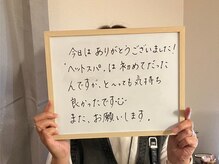 今日は ありがとうございました!
"ヘッドスパ"は 初めてだった
んですが、とへっても気持ち
良かったです
また、お願いします。